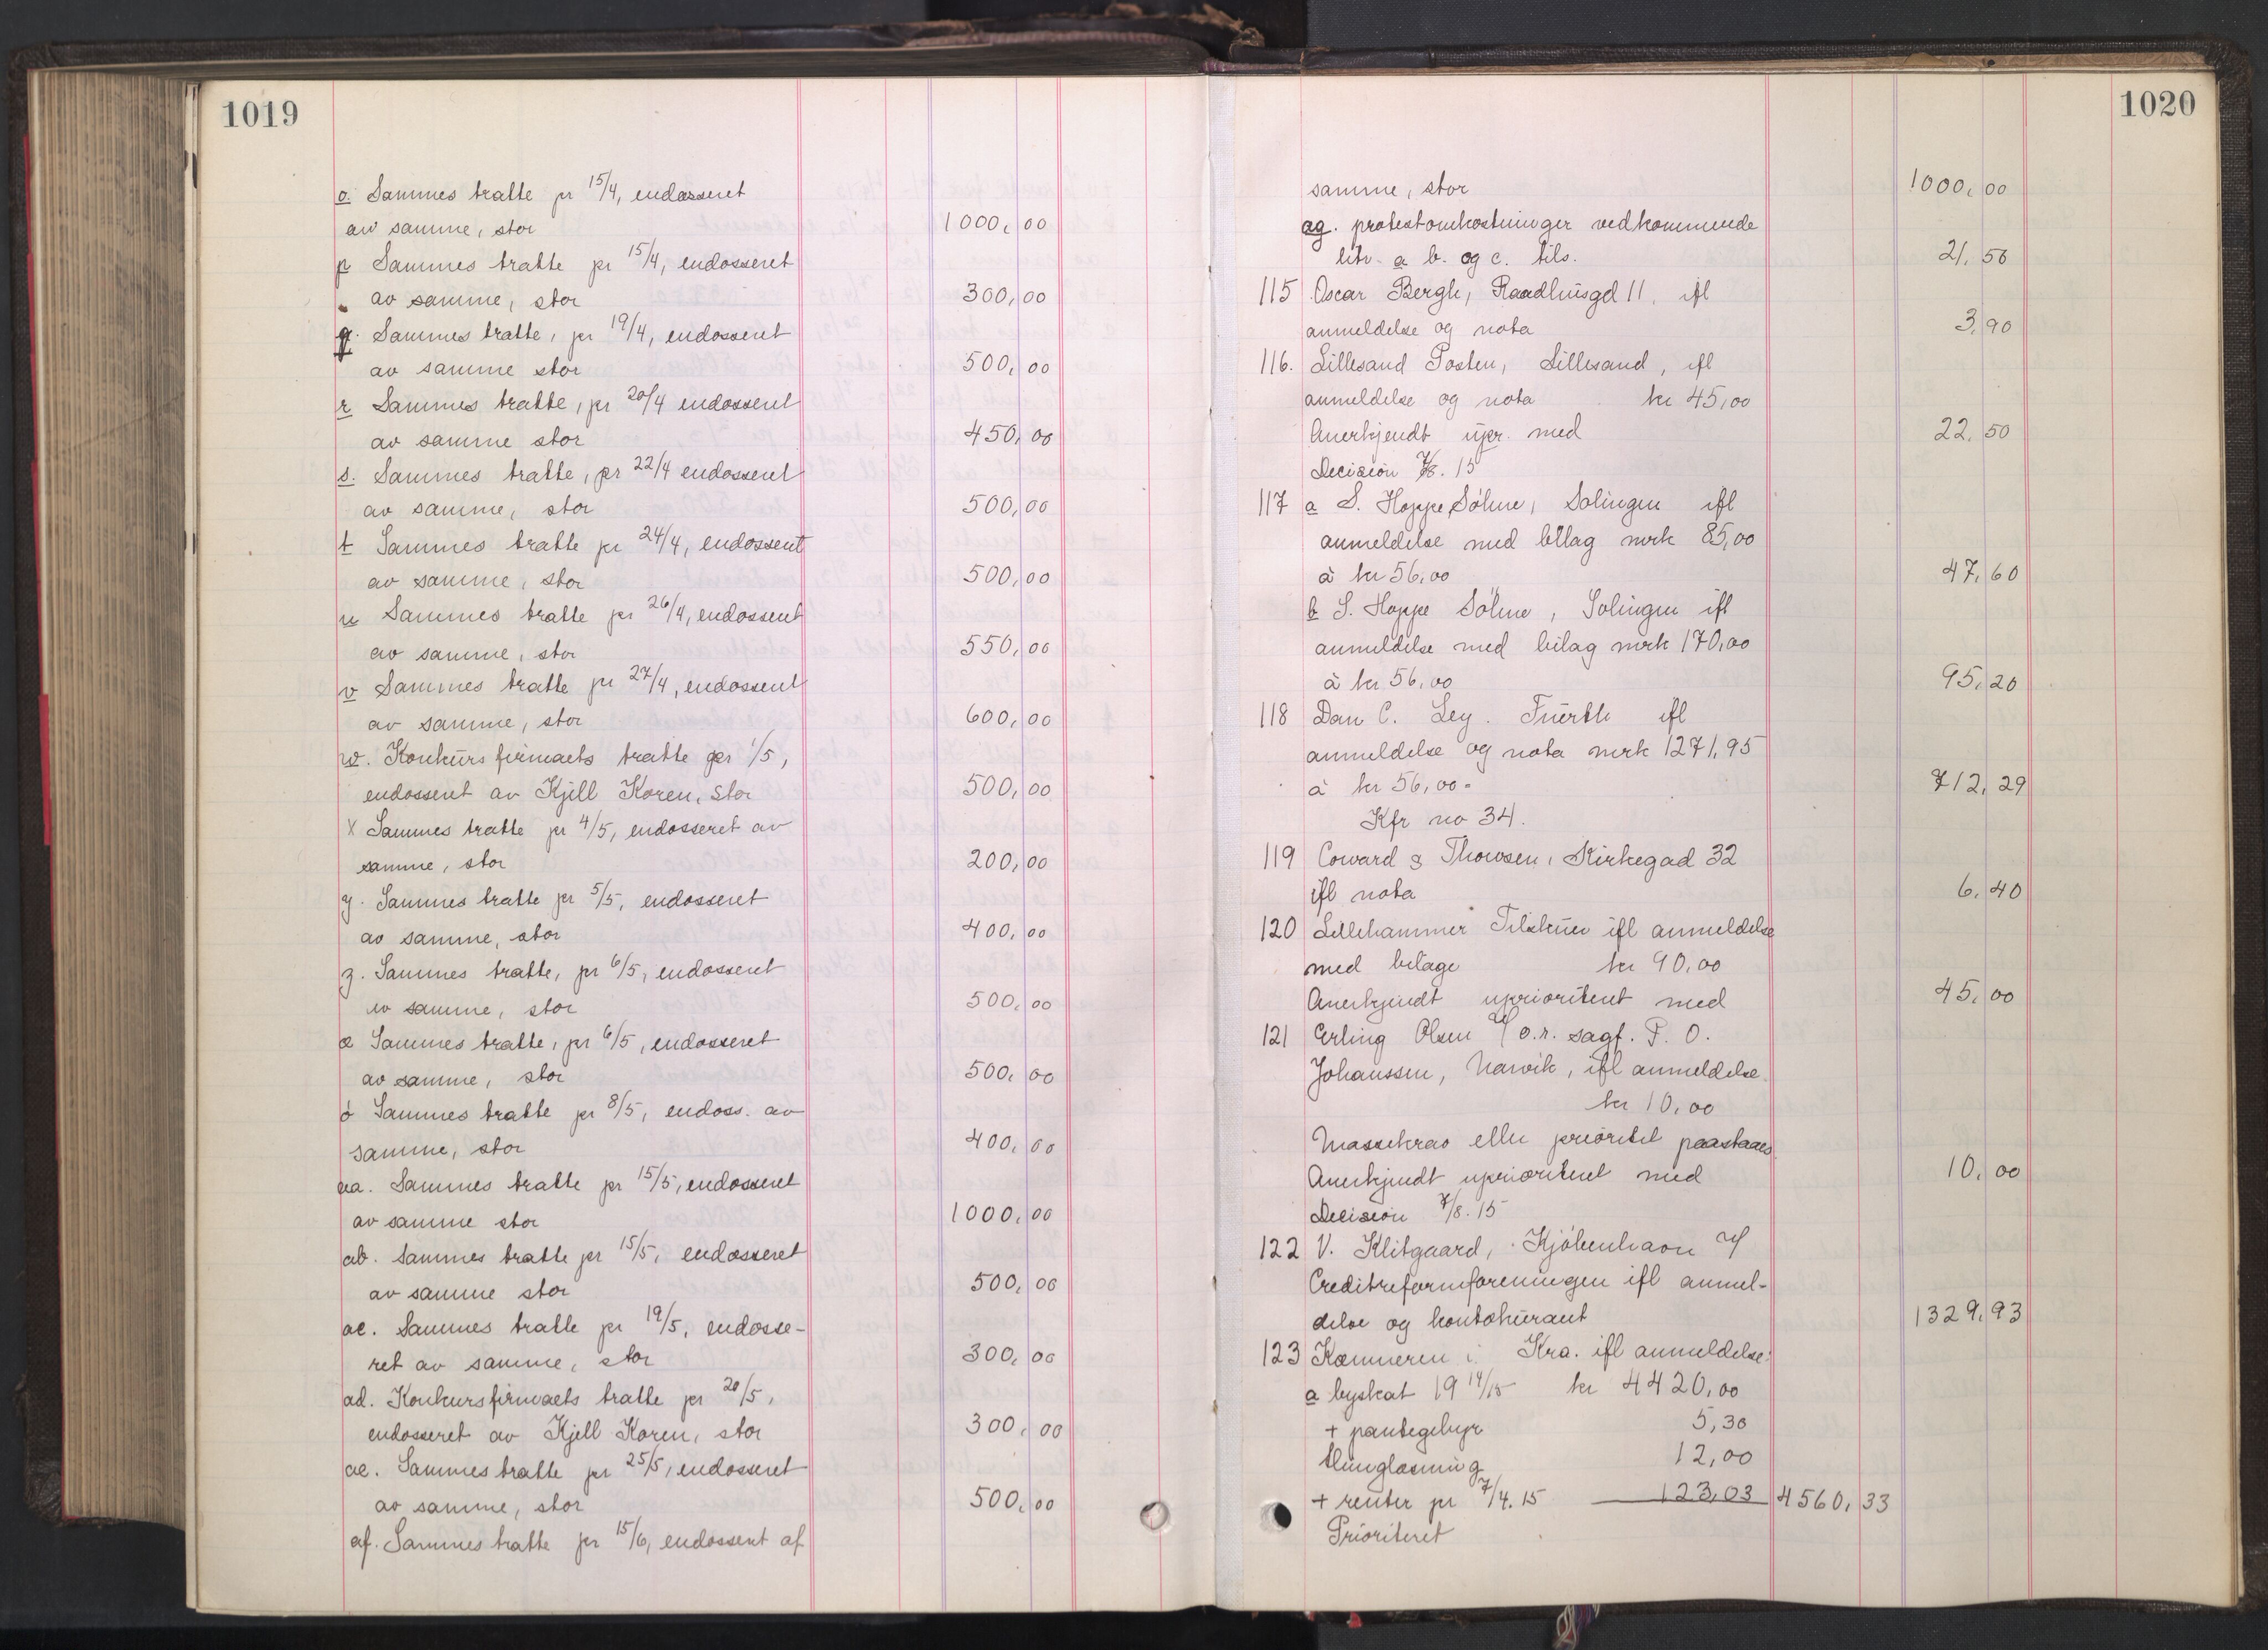 1019
o. Sammes tratte pr 15/4, endosseret
av samme, stor 1000,00
p Sammes tratte pr 15/4, endosseret
av samme, stor 300,00
q. Sammes tratte, pr 19/4, endosseret
av samme stor 500,00
r Sammes tratte, pr 20/4 endosseret
av samme stor 450,00
s. Sammes tratte, pr 22/4 endosseret
av samme, stor 500,00
t Sammes tratte pr 24/4, endosseret
av samme, stor 500,00
u Sammes tratte pr 26/4, endosseret
av samme, stor 550,00
v Sammes tratte pr 27/4, endosseret
av samme, stor 600,00
w. Konkursfirmaets tratte pr 1/5,
endosseret av Kjell Koren, stor 500,00
x Sammes tratte pr 4/5, endosseret av
samme, stor 200,00
y. Sammes tratte pr 5/5, endosseret
av samme, stor 400,00
z. Sammes tratte, pr 6/5, endosseret
av samme, stor 500,00
æ Sammes tratte, pr 6/5, endosseret
av samme, stor 500,00
ö Sammes tratte pr 8/5, endoss. av
samme, stor 400,00
aa. Sammes tratte pr 15/5, endosseret
av samme stor 1000,00
ab. Sammes tratte pr 15/5, endosseret
av samme stor 500,00
ac. Sammes tratte pr 19/5, endosse-
ret av samme, stor 300,00
ad. Konkursfirmaets tratte pr 20/5,
endosseret av Kjell Koren, stor 300,00
ae. Sammes tratte pr 25/5, endosseret
av samme, stor 500,00
af. Sammes tratte pr 15/6, endosseret af
1020
samme, stor 1000,00
ag. protestomkostninger vedkommende
litr. a b. og c. tils. 21,50
115 Oscar Bergh, Raadhusgd 11, ifl
anmeldelse og nota 3,90
116. Lillesand Posten, Lillesand, ifl
anmeldelse og nota kr 45,00
Anerkjendt upr. med 22,50
Decision 7/8. 15
117 a S. Hoppe Söhne, Solingen ifl
anmeldelse med bilag mrk 85,00
à kr 56,00 47,60
b S. Hoppe Söhne, Solingen ifl
anmeldelse med bilag mrk 170,00
à kr 56,00 95,20
118 Dan C. Ley. Fuerth ifl
anmeldelse og nota mrk 1271,95
à kr 56,00. 712,29
Kfr no 34.
119 Coward & Thowsen, Kirkegad 32
ifl nota 6,40
120 Lillehammer Tilskuer ifl anmeldelse
med bilage kr 90,00
Anerkjendt uprioriteret med 45,00
121 Erling Olsen o.r. sagf. P. O.
Johanssen, Narvik, ifl anmeldelse.
kr 10,00
Massekrav eller prioritet paastaaes.
Anerkjendt uprioriteret med 10,00
Decision 7/8. 15
122 V. Klitgaard, Kjöbenhavn
Creditreformforeningen ifl anmel-
delse og kontokurant 1329,93
123 Kæmneren i Kra. ifl anmeldelse:
a byskat 19 14/15 kr 4420,00
+ pantegebyr 5,30
thinglæsning 12,00
+ renter pr 7/4. 15 123,03 4560,33
Prioriteret